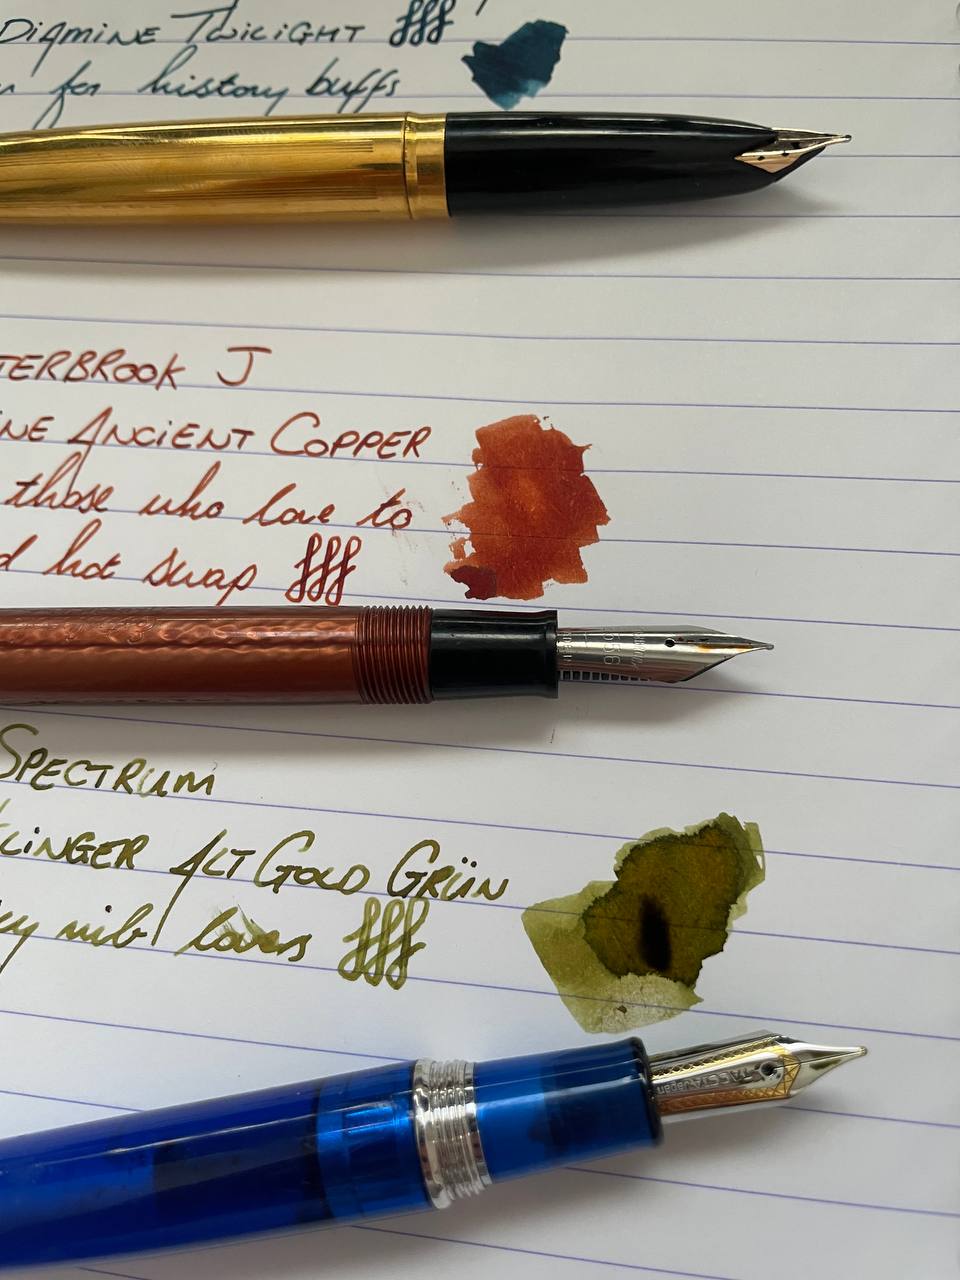 DIAMINE TWILIGHT fff
for history buffs
TERBROOK J
INE ANCIENT COPPER
those who love to
d hot swap fff
SPECTRUM
KLINGER ALT GOLD GRÜN
nib lovers fff
TACCIA Japan